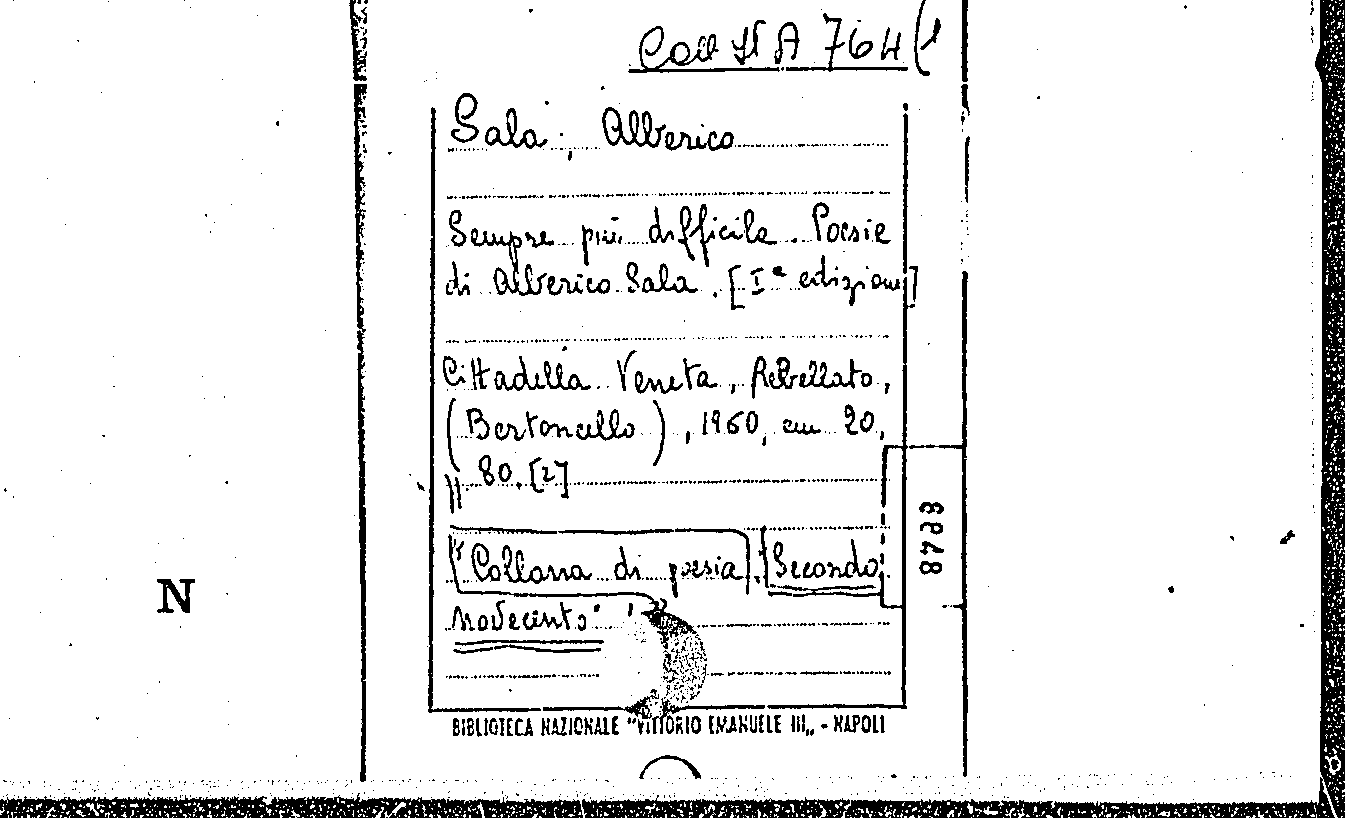 Coll It A 764 (1
Sala, Alberico
Sempre più difficile. Poesie
di Alberico Sala. [Iª edizione]
Cittadella Veneta, Rebellato,
(Bertoncello), 1960, cm 20,
80. [2]
"Collana di poesia. Secondo
novecento"
8248
N
BIBLIOTECA NAZIONALE "VITTORIO EMANUELE III„ - NAPOLI